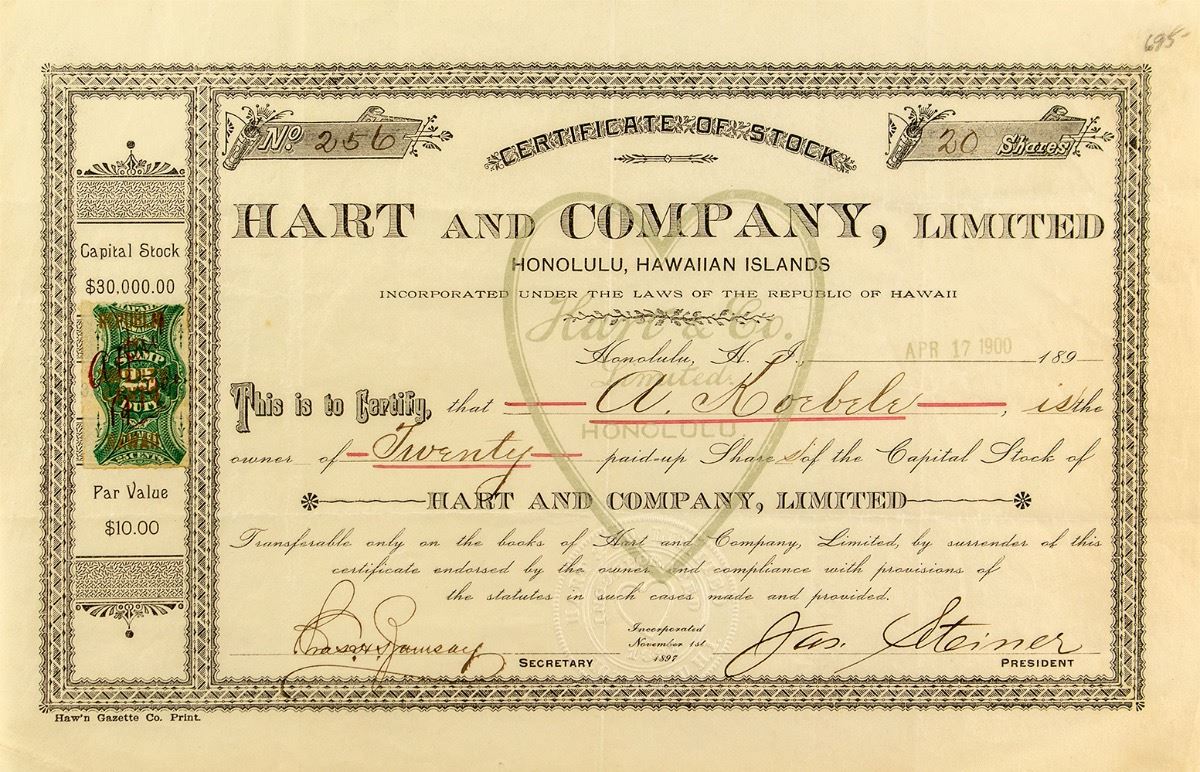 695-
No. 256
CERTIFICATE OF STOCK
20 Shares
HART AND COMPANY, LIMITED
HONOLULU, HAWAIIAN ISLANDS
INCORPORATED UNDER THE LAWS OF THE REPUBLIC OF HAWAII
Hart & Co.
Limited.
HONOLULU
Honolulu, H. I., APR 17 1900 189
This is to Certify, that A. Koebele, is the
owner of Twenty paid-up Shares of the Capital Stock of
HART AND COMPANY, LIMITED
Transferable only on the books of Hart and Company, Limited, by surrender of this
certificate endorsed by the owner and compliance with provisions of
the statutes in such cases made and provided.
Chas. H. Ramsay SECRETARY
Incorporated
November 1st
1897
Jas. Steiner PRESIDENT
Capital Stock
$30.000.00
HAWAII
Par Value
$10.00
Haw'n Gazette Co. Print.